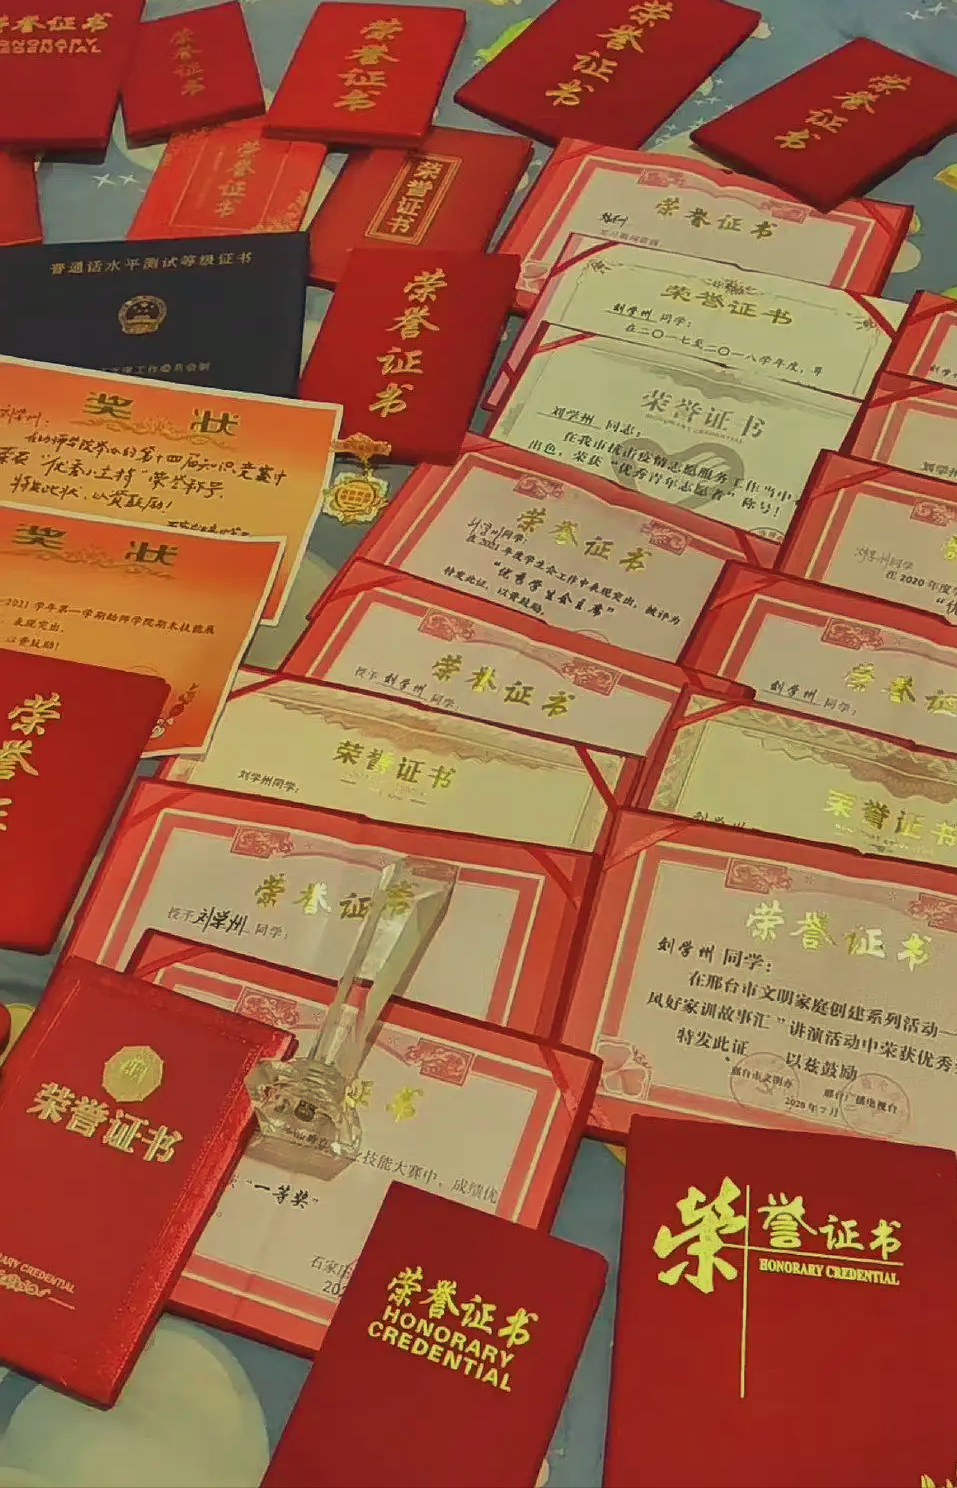 荣誉证书
HONORARY
CREDENTIAL
荣誉证书
荣誉证书
荣誉证书
荣誉证书
荣誉证书
荣誉证书
普通话水平测试等级证书
荣誉证书
荣誉证书
荣誉证书
刘学州 同学:
在二〇一七至二〇一八学年度,
荣誉证书
刘学州 同志:
在我市抗击疫情志愿服务工作当中
出色,荣获“优秀青年志愿者”称号!
奖 状
刘学州:
在幼师学院举办的第十四届知识竞赛中
荣获“优秀小主持”荣誉称号,
特发此状,以资鼓励!
奖 状
2021学年第一学期幼师学院期末技能展
表现突出,
以资鼓励!
荣誉证书
刘学州同学:
在2021年度学生会工作中表现突出,被评为
“优秀学生会主席”
特发此证,以资鼓励。
刘学州同学
在2020年度
荣誉证书
授予 刘学州 同学:
荣誉证
刘学州 同学:
荣誉证书
刘学州同学:
荣誉证书
刘学州
荣誉证书
授予 刘学州 同学:
荣誉证书
刘学州 同学:
在邢台市文明家庭创建系列活动—
风好家训故事汇”讲演活动中荣获优秀
特发此证 以兹鼓励
邢台市文明办 邢台广播电视台
2020年7月
荣誉
荣誉证书
CREDENTIAL
证书
技能大赛中,成绩优
“一等奖”
石家庄
202
荣誉证书
HONORARY
CREDENTIAL
荣誉证书
HONORARY CREDENTIAL